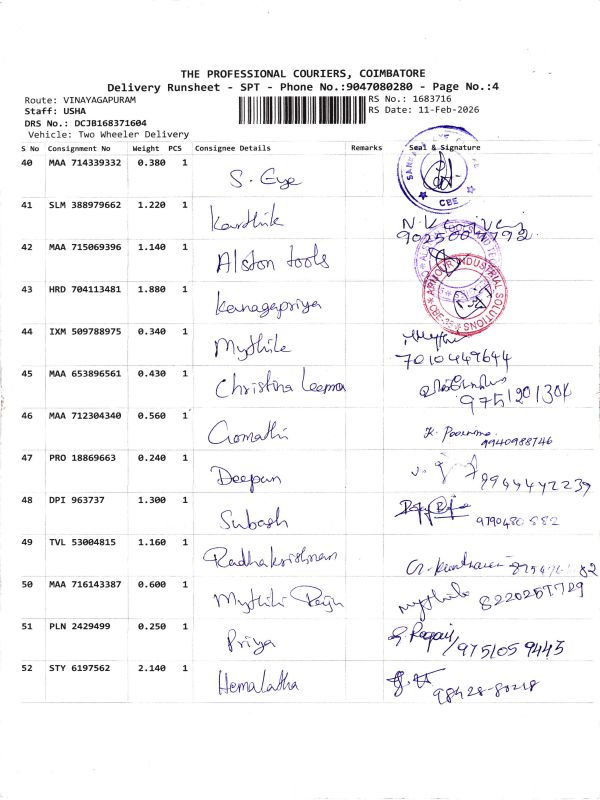 THE PROFESSIONAL COURIERS, COIMBATORE
Delivery Runsheet - SPT - Phone No.:9047080280 - Page No.:4
Route: VINAYAGAPURAM RS No.: 1683716
Staff: USHA RS Date: 11-Feb-2026
DRS No.: DCJB168371604
Vehicle: Two Wheeler Delivery
S No Consignment No Weight PCS Consignee Details Remarks Seal & Signature
40 MAA 714339332 0.380 1 S. Eye CBE
41 SLM 388979662 1.220 1 Karthik
42 MAA 715069396 1.140 1 Alston tools
43 HRD 704113481 1.880 1 Kanagapriya ARMOUR INDUSTRIAL SOLUTIONS
44 IXM 509788975 0.340 1 Mythile 7010449644
45 MAA 653896561 0.430 1 Christina Leema
46 MAA 712304340 0.560 1 Gomathi K. Poornima 9940988746
47 PRO 18869663 0.240 1 Deepan 9944472239
48 DPI 963737 1.300 1 Subash
49 TVL 53004815 1.160 1 Radhakrishnan
50 MAA 716143387 0.600 1 Mythili mythile
51 PLN 2429499 0.250 1 Priya 9751059445
52 STY 6197562 2.140 1 Hemalatha 98428-80218